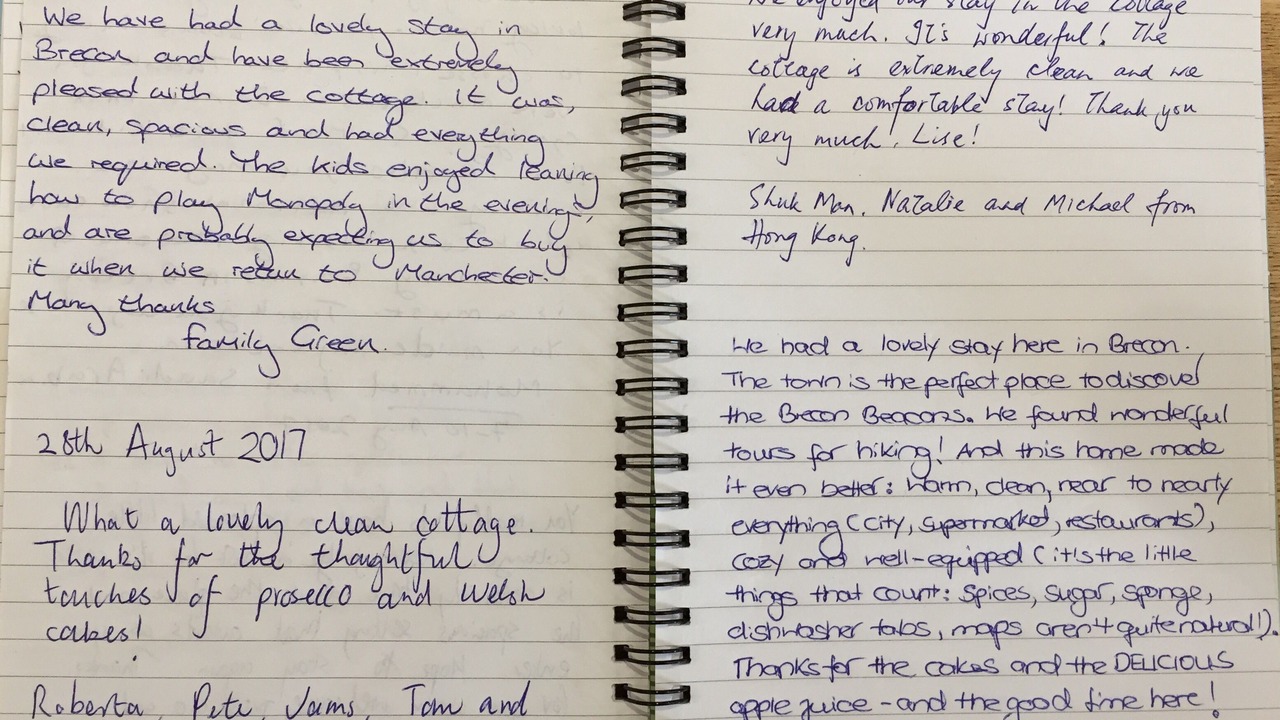 We have had a lovely stay in
Brecon and have been extremely
pleased with the cottage. It was,
clean, spacious and had everything
we required. The kids enjoyed leaning
how to play Monopoly in the evening,
and are probably expecting us to buy
it when we retun to Manchester.
Many thanks
family Green.
28th August 2017
What a lovely clean cottage.
Thanks for the thoughtful
touches of prosecco and Welsh
cakes!
Roberta, Pete, Jams, Tom and
We enjoyed our stay in the cottage
very much. It's wonderful! The
cottage is extremely clean and we
had a comfortable stay! Thank you
very much, Lise!
Shuk Man, Natalie and Michael from
Hong Kong.
We had a lovely stay here in Brecon.
The town is the perfect place to discover
the Brecon Beacons. We found wonderful
tours for hiking! And this home made
it even better: warm, clean, near to nearly
everything (city, supermarket, restaurants),
cozy and well-equipped (it's the little
things that count: spices, sugar, sponge,
dishwasher tabs, maps aren't quite natural!).
Thanks for the cakes and the DELICIOUS
apple juice - and the good time here!